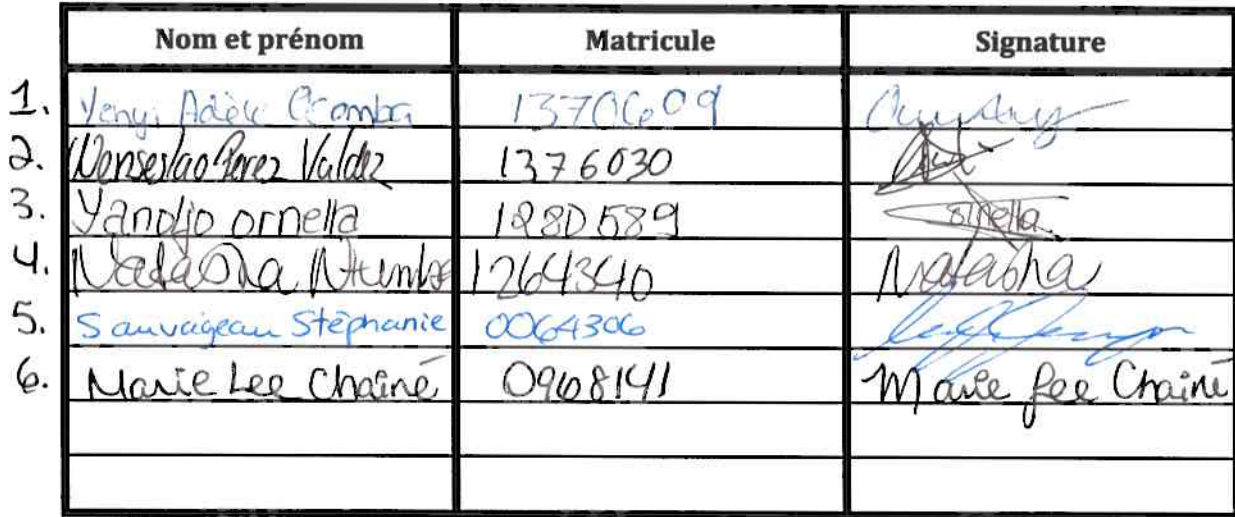 Nom et prénom Matricule Signature
1. Yenyi Adèle 1370609
2. Wenseslao Perez Valdez 1376030
3. Yandjo ornella 1280589 ornella
4. Natasha Ntumba 1264340 Natasha
5. Sauvageau Stéphanie 0064306
6. Marie Lee Chainé 0968141 Marie Lee Chainé